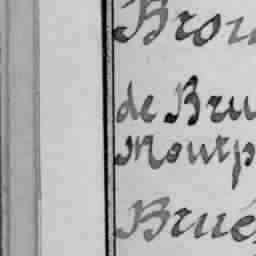 Brou
de Bru
Montp
Brué